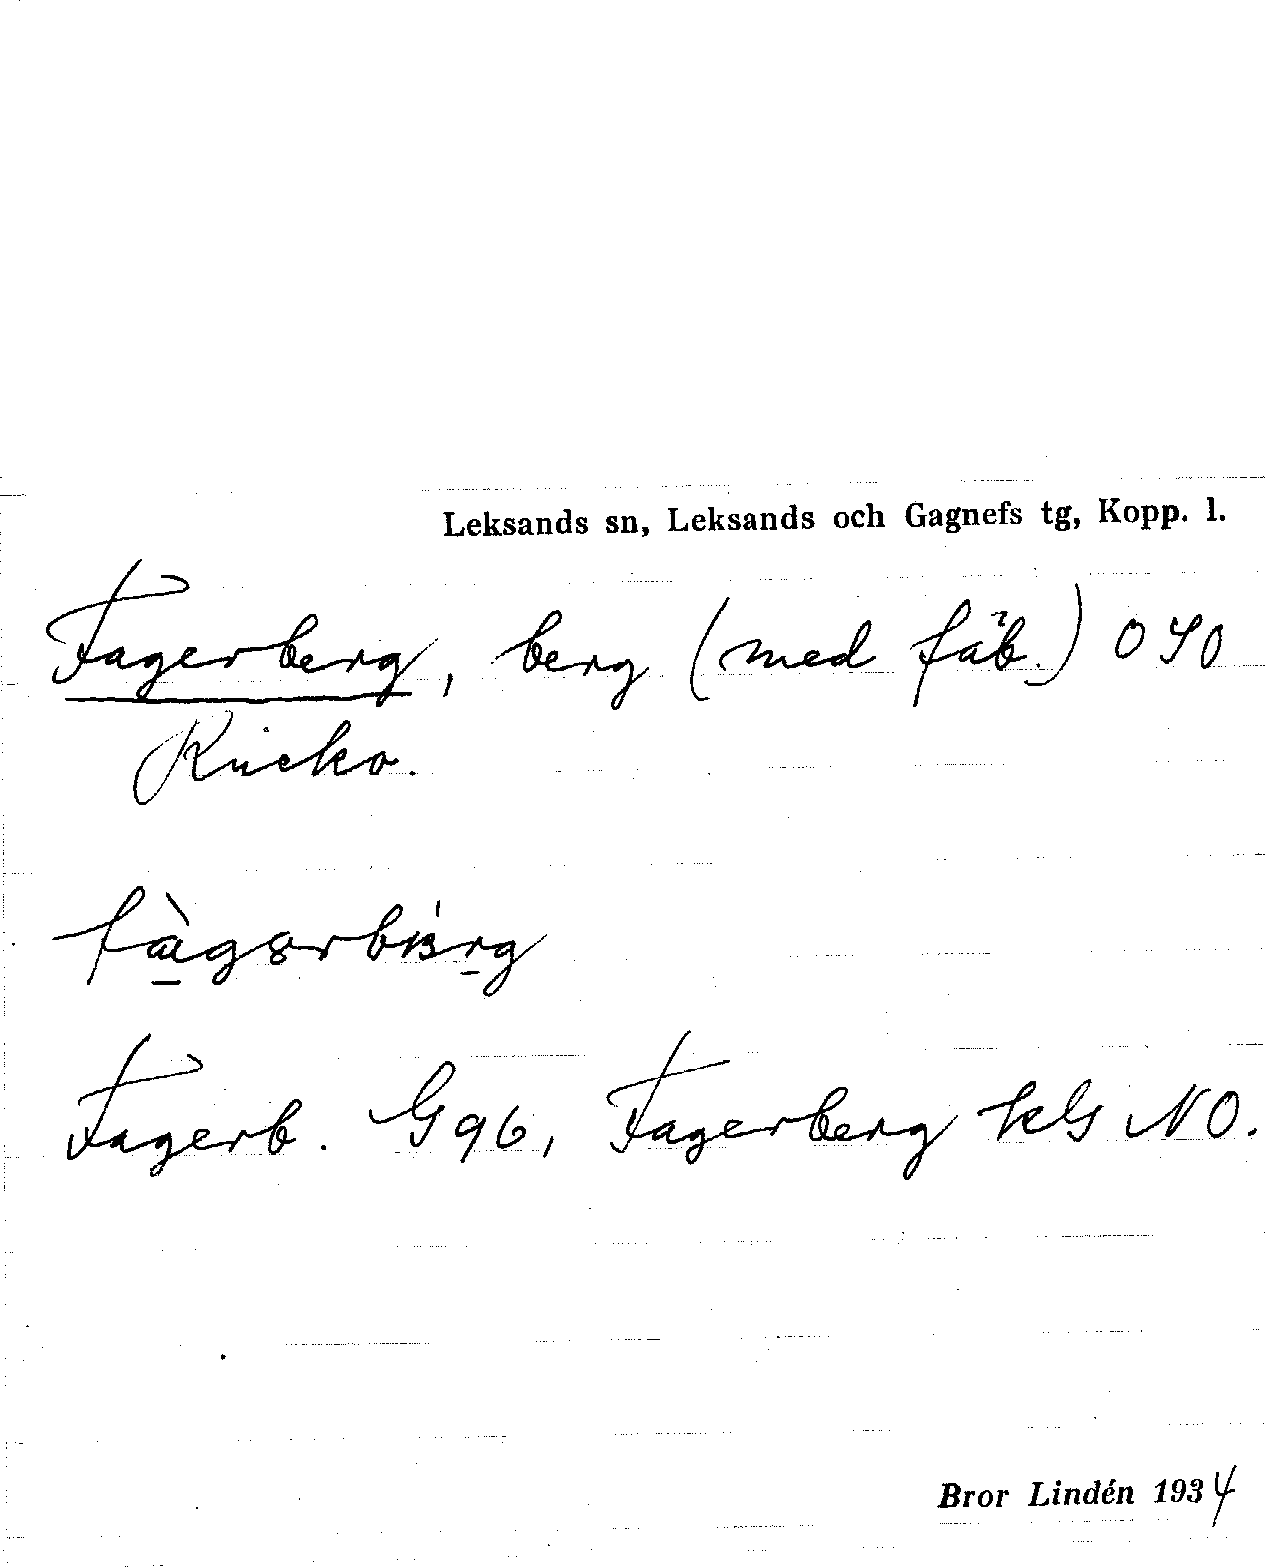 Leksands sn, Leksands och Gagnefs tg, Kopp. l.
Fagerberg, berg (med fäb.) OSO
Fagerb. G96, Fagerberg kG NO.
Bror Lindén 1934